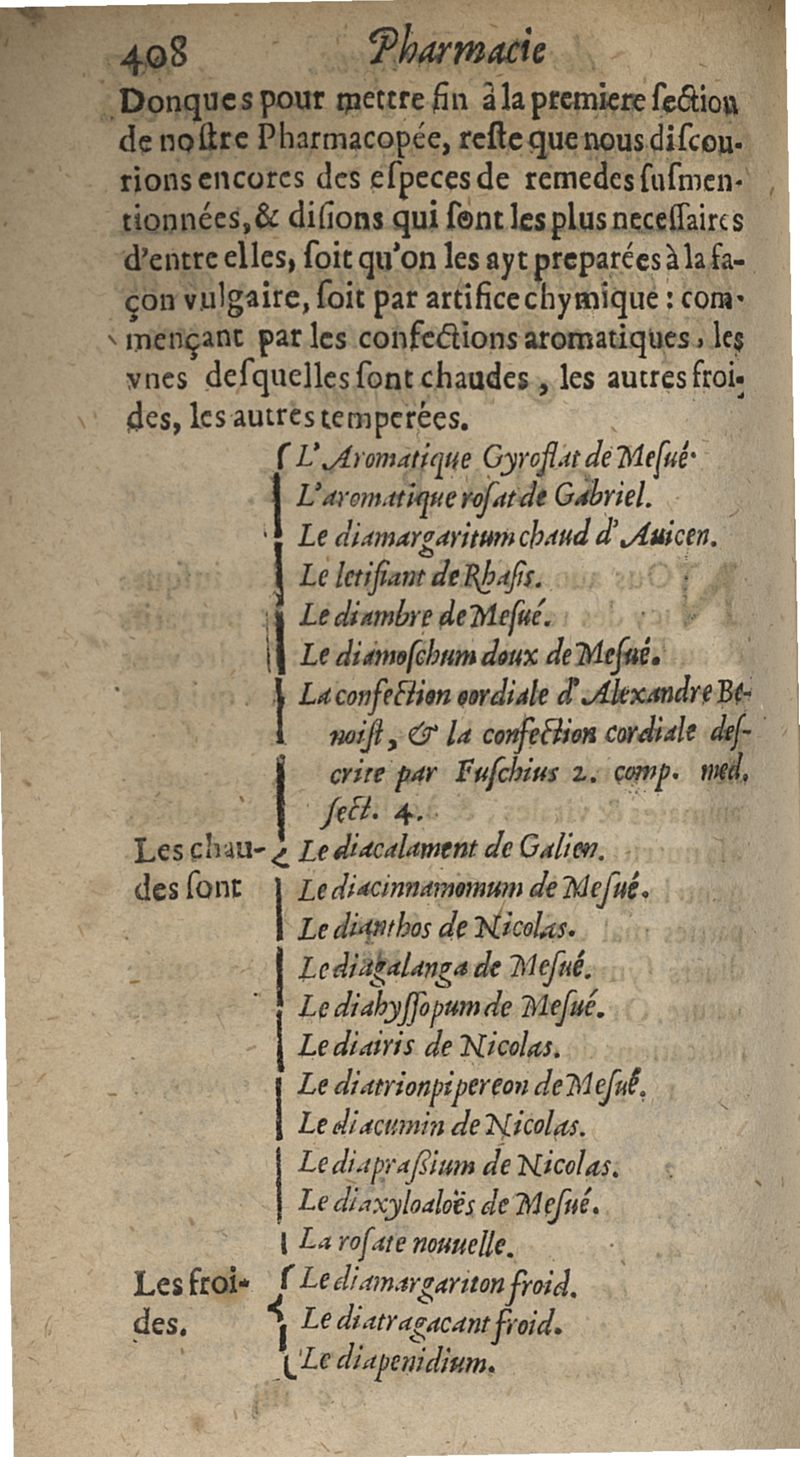 408 Pharmacie
Donques pour mettre fin à la premiere ſection
de noſtre Pharmacopée, reſte que nous diſcou-
rions encores des eſpeces de remedes ſuſmen-
tionnées, & diſions qui ſont les plus neceſſaires
d'entre elles, ſoit qu'on les ayt preparées à la fa-
çon vulgaire, ſoit par artifice chymique : com-
mençant par les confections aromatiques, les
vnes deſquelles ſont chaudes, les autres froi-
des, les autres temperées.
L'Aromatique Gyroflat de Meſué.
L'aromatique roſat de Gabriel.
Le diamargaritum chaud d'Auicen.
Le letifiant de Rhaſis.
Le diambre de Meſué.
Le diamoſchum doux de Meſué.
La confection cordiale d'Alexandre Be-
noiſt, & la confection cordiale deſ-
crite par Fuſchius 2. comp. med.
ſect. 4.
Les chau- Le diacalament de Galien.
des ſont Le diacinnamomum de Meſué.
Le dianthos de Nicolas.
Le diagalanga de Meſué.
Le diahyſſopum de Meſué.
Le diairis de Nicolas.
Le diatrionpipereon de Meſué.
Le diacumin de Nicolas.
Le diapraſsium de Nicolas.
Le diaxyloaloës de Meſué.
La roſate nouuelle.
Les froi- Le diamargariton froid.
des. Le diatragacant froid.
Le diapenidium.